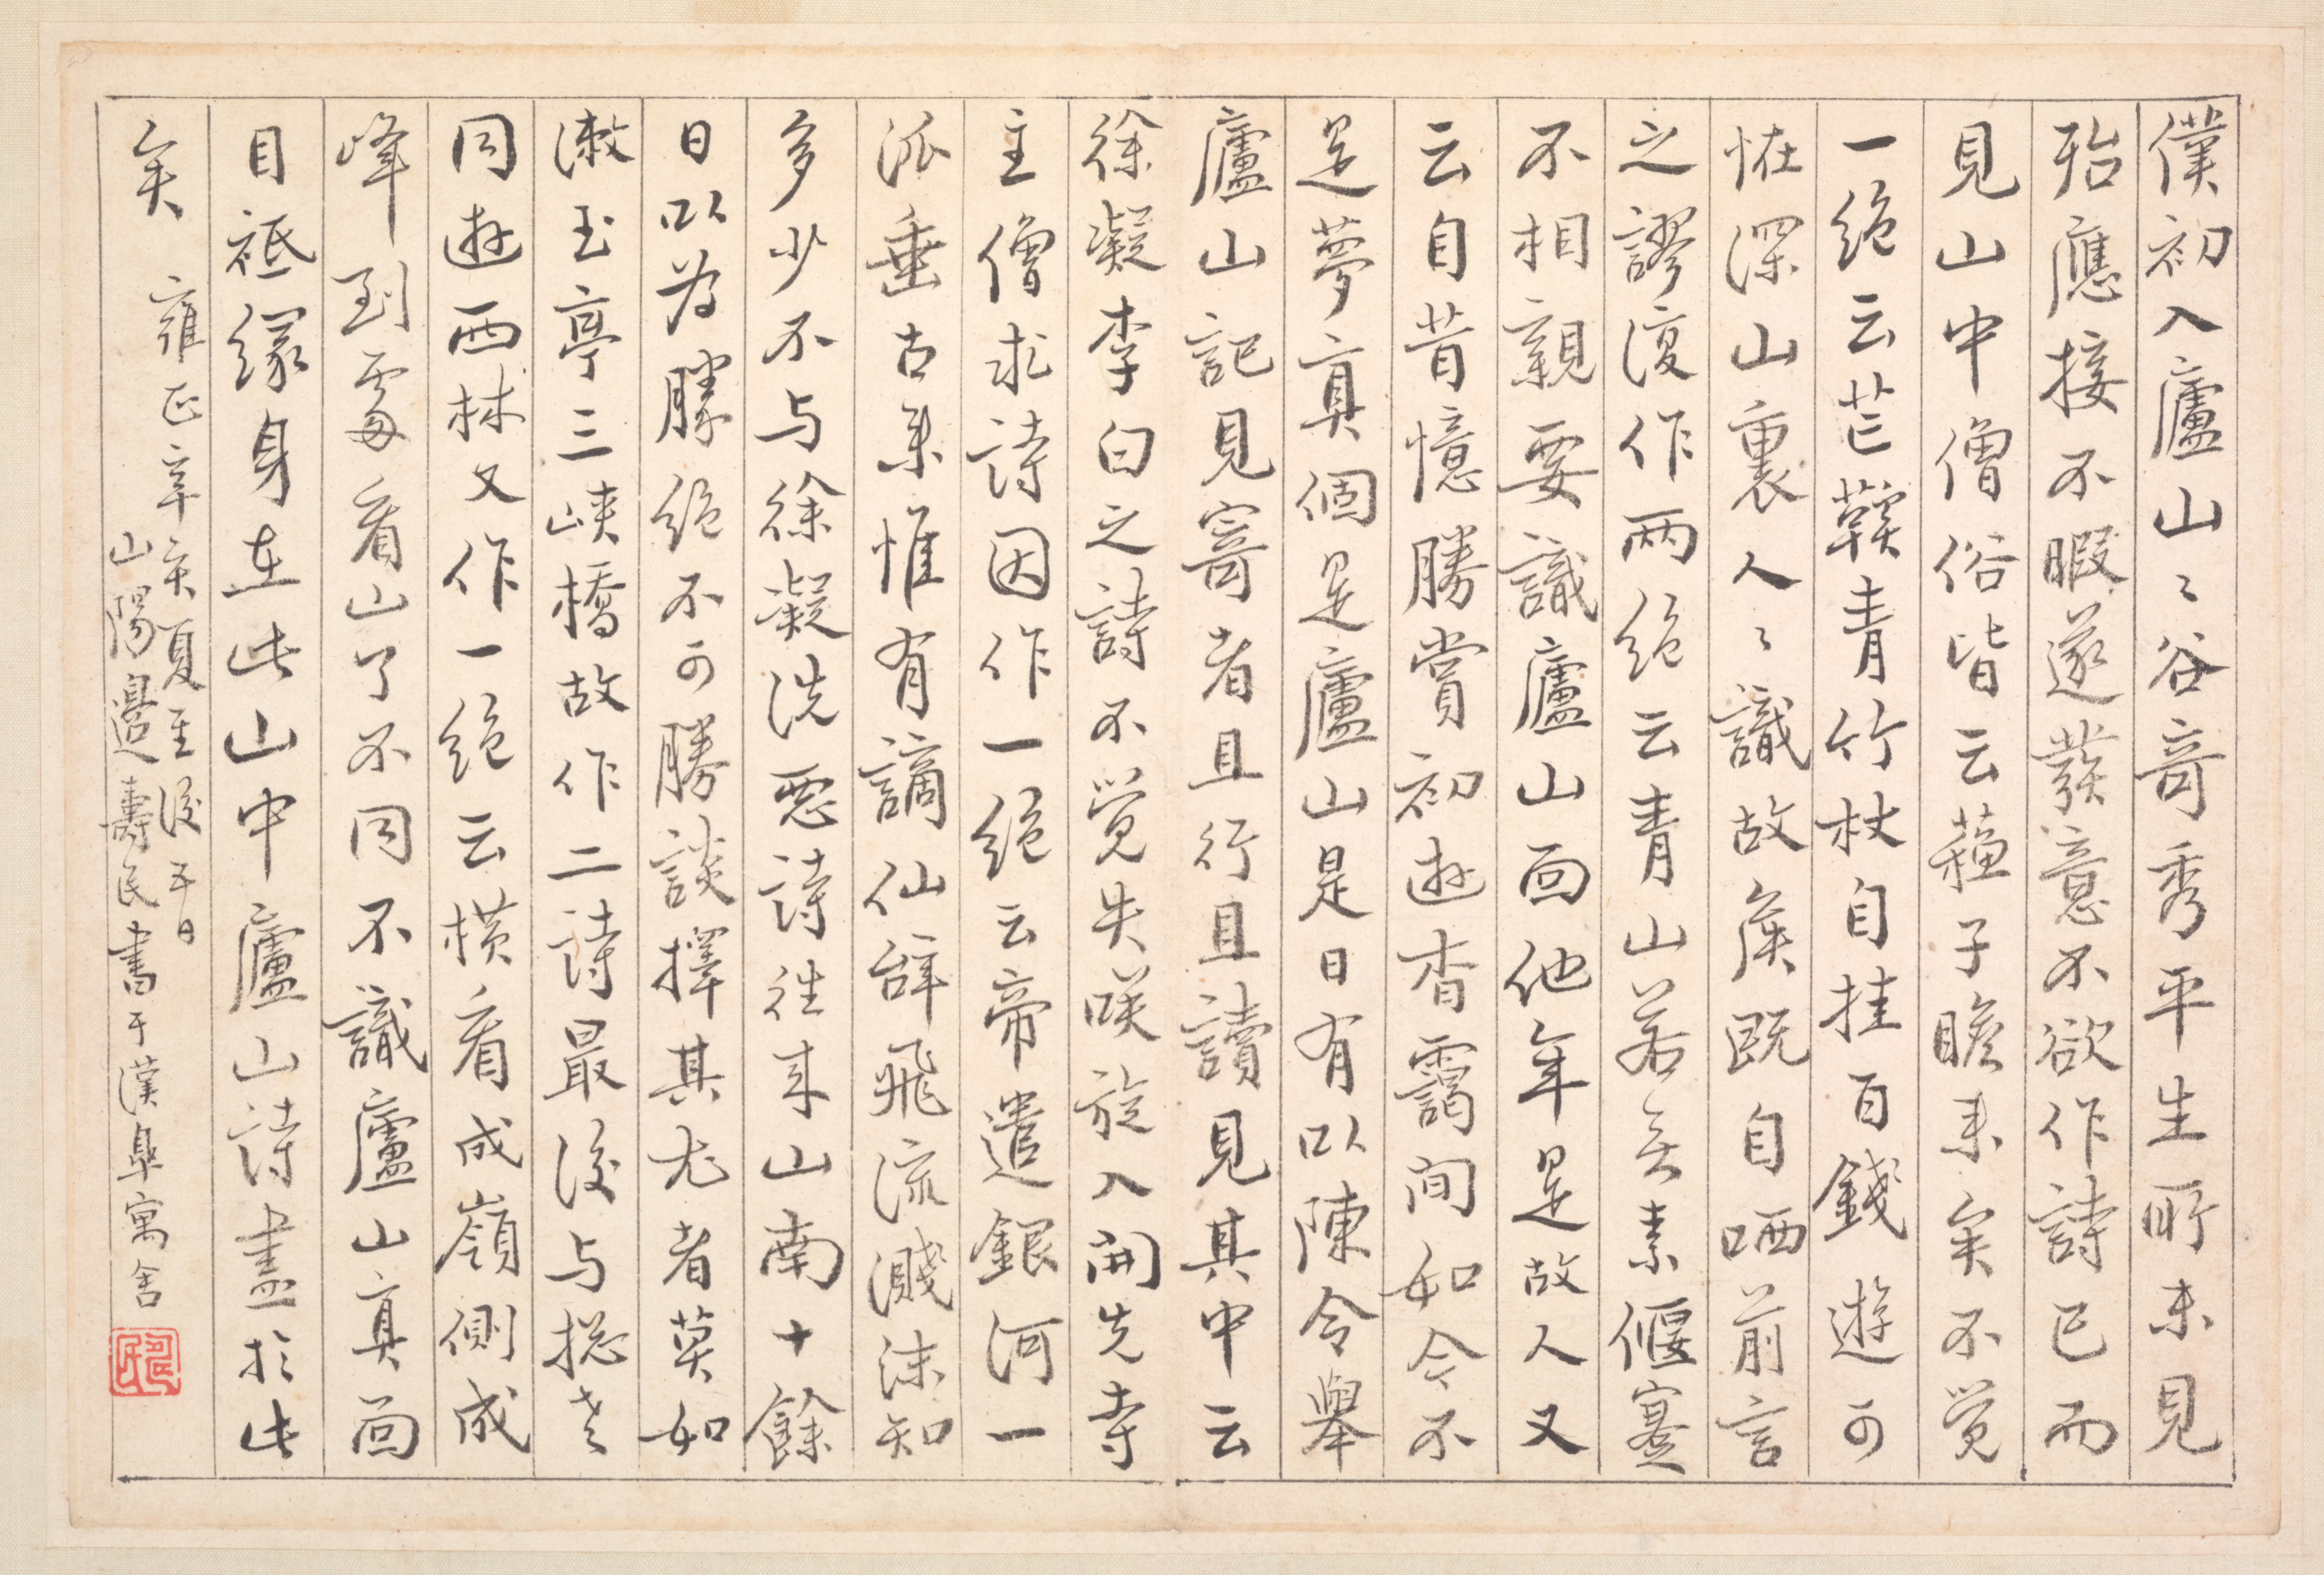 僕初入廬山山谷奇秀平生所未見
殆應接不暇遂發意不欲作詩已而
見山中僧俗皆云蘓子瞻来矣不覺
一絶云芒鞵青竹杖自挂百錢遊可
怪深山裏人人識故矦既自哂前言
之謬復作兩絶云青山若無素偃蹇
不相親要識廬山面他年是故人又
云自昔憶勝賞初遊杳靄間如今不
是夢真個是廬山是日有以陳令舉
廬山記見寄者且行且讀見其中云
徐凝李白之詩不覺失咲旋入開先寺
主僧求詩因作一絶云帝遣銀河一
派垂古来惟有謫仙辭飛流濺沫知
多少不与徐凝洗惡詩往来山南十餘
日以為勝絶不可勝談擇其尤者莫如
漱玉亭三峽橋故作二詩最後与揔老
同遊西林又作一絶云横看成嶺側成
峰到處看山了不同不識廬山真面
目祇緣身在此山中廬山詩盡於此
矣
雍正辛亥夏至後五日
山陽邊壽民書于漢皐寓舍